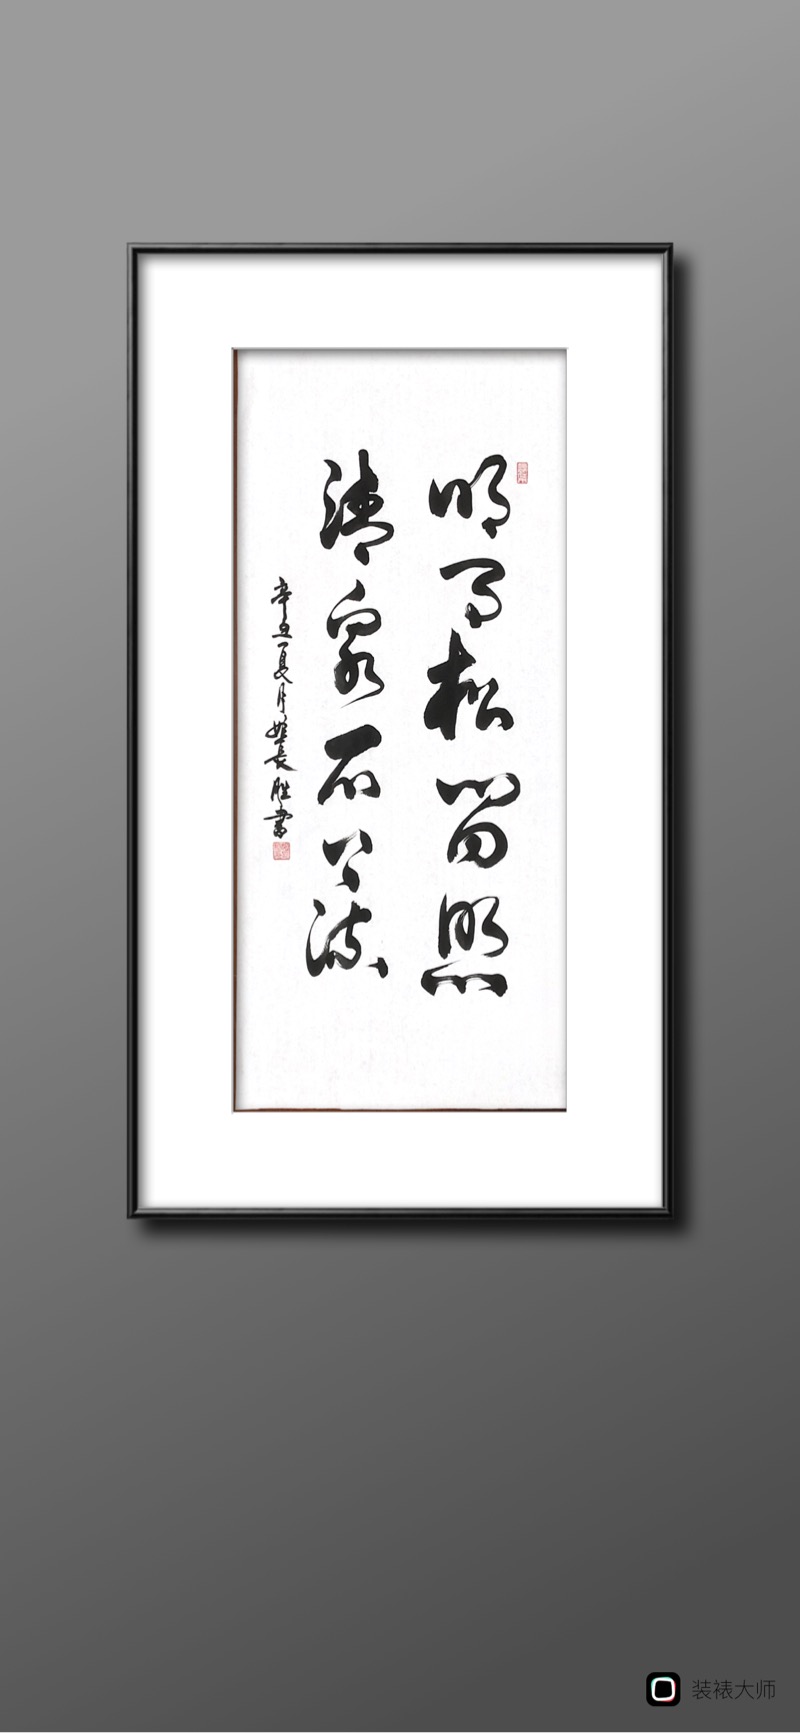 明月松间照
清泉石上流
辛丑夏月 长胜书
装裱大师